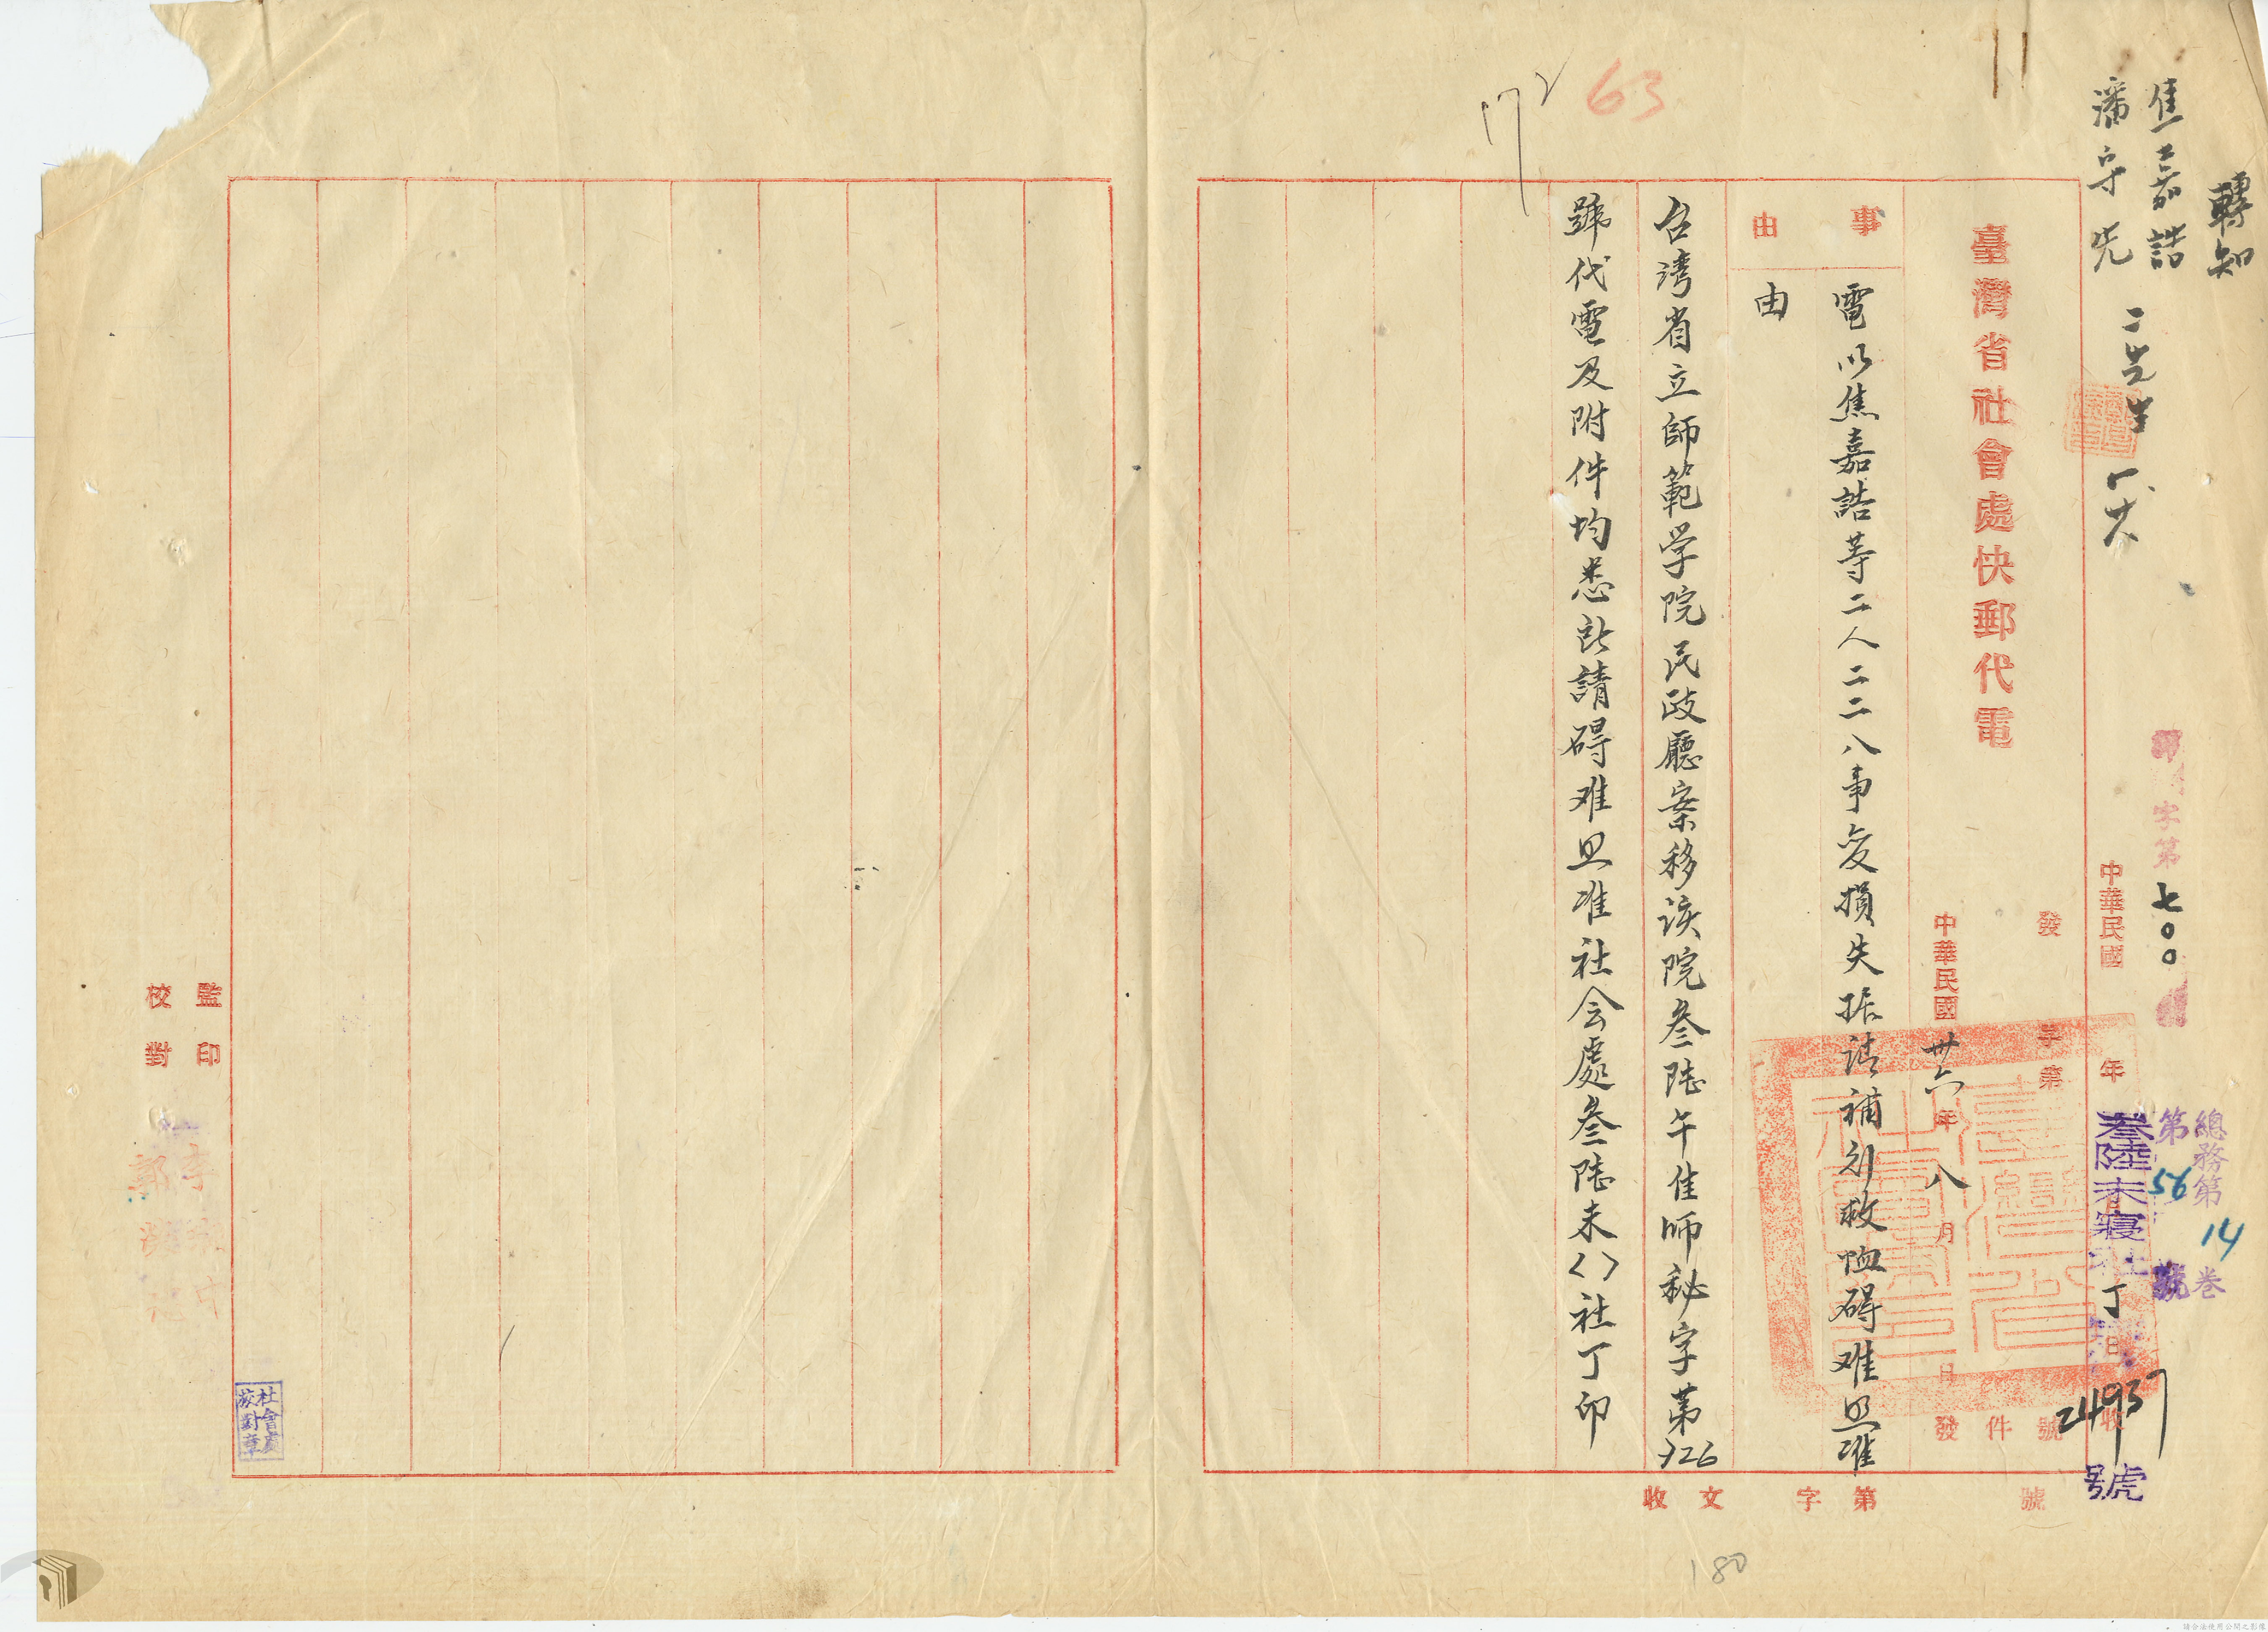 轉知
焦嘉誥
潘守先
二先生
字第七〇〇號
總務第14卷
第56號
中華民國 年 月 日收
叁陸未寢社丁
24937
號
臺灣省社會處快郵代電
發 字第 號
中華民國卅六年八月 日發
件
事由
電以焦嘉誥等二人二二八事變損失据請補列救恤碍难照准
由
台湾省立師範学院民政廳案移該院叁陸午佳師秘字第926
號代電及附件均悉所請碍难照准社会處叁陸未〈〉社丁印
收文 字第 號
監印
校對
社會處
校對章
63
172
180